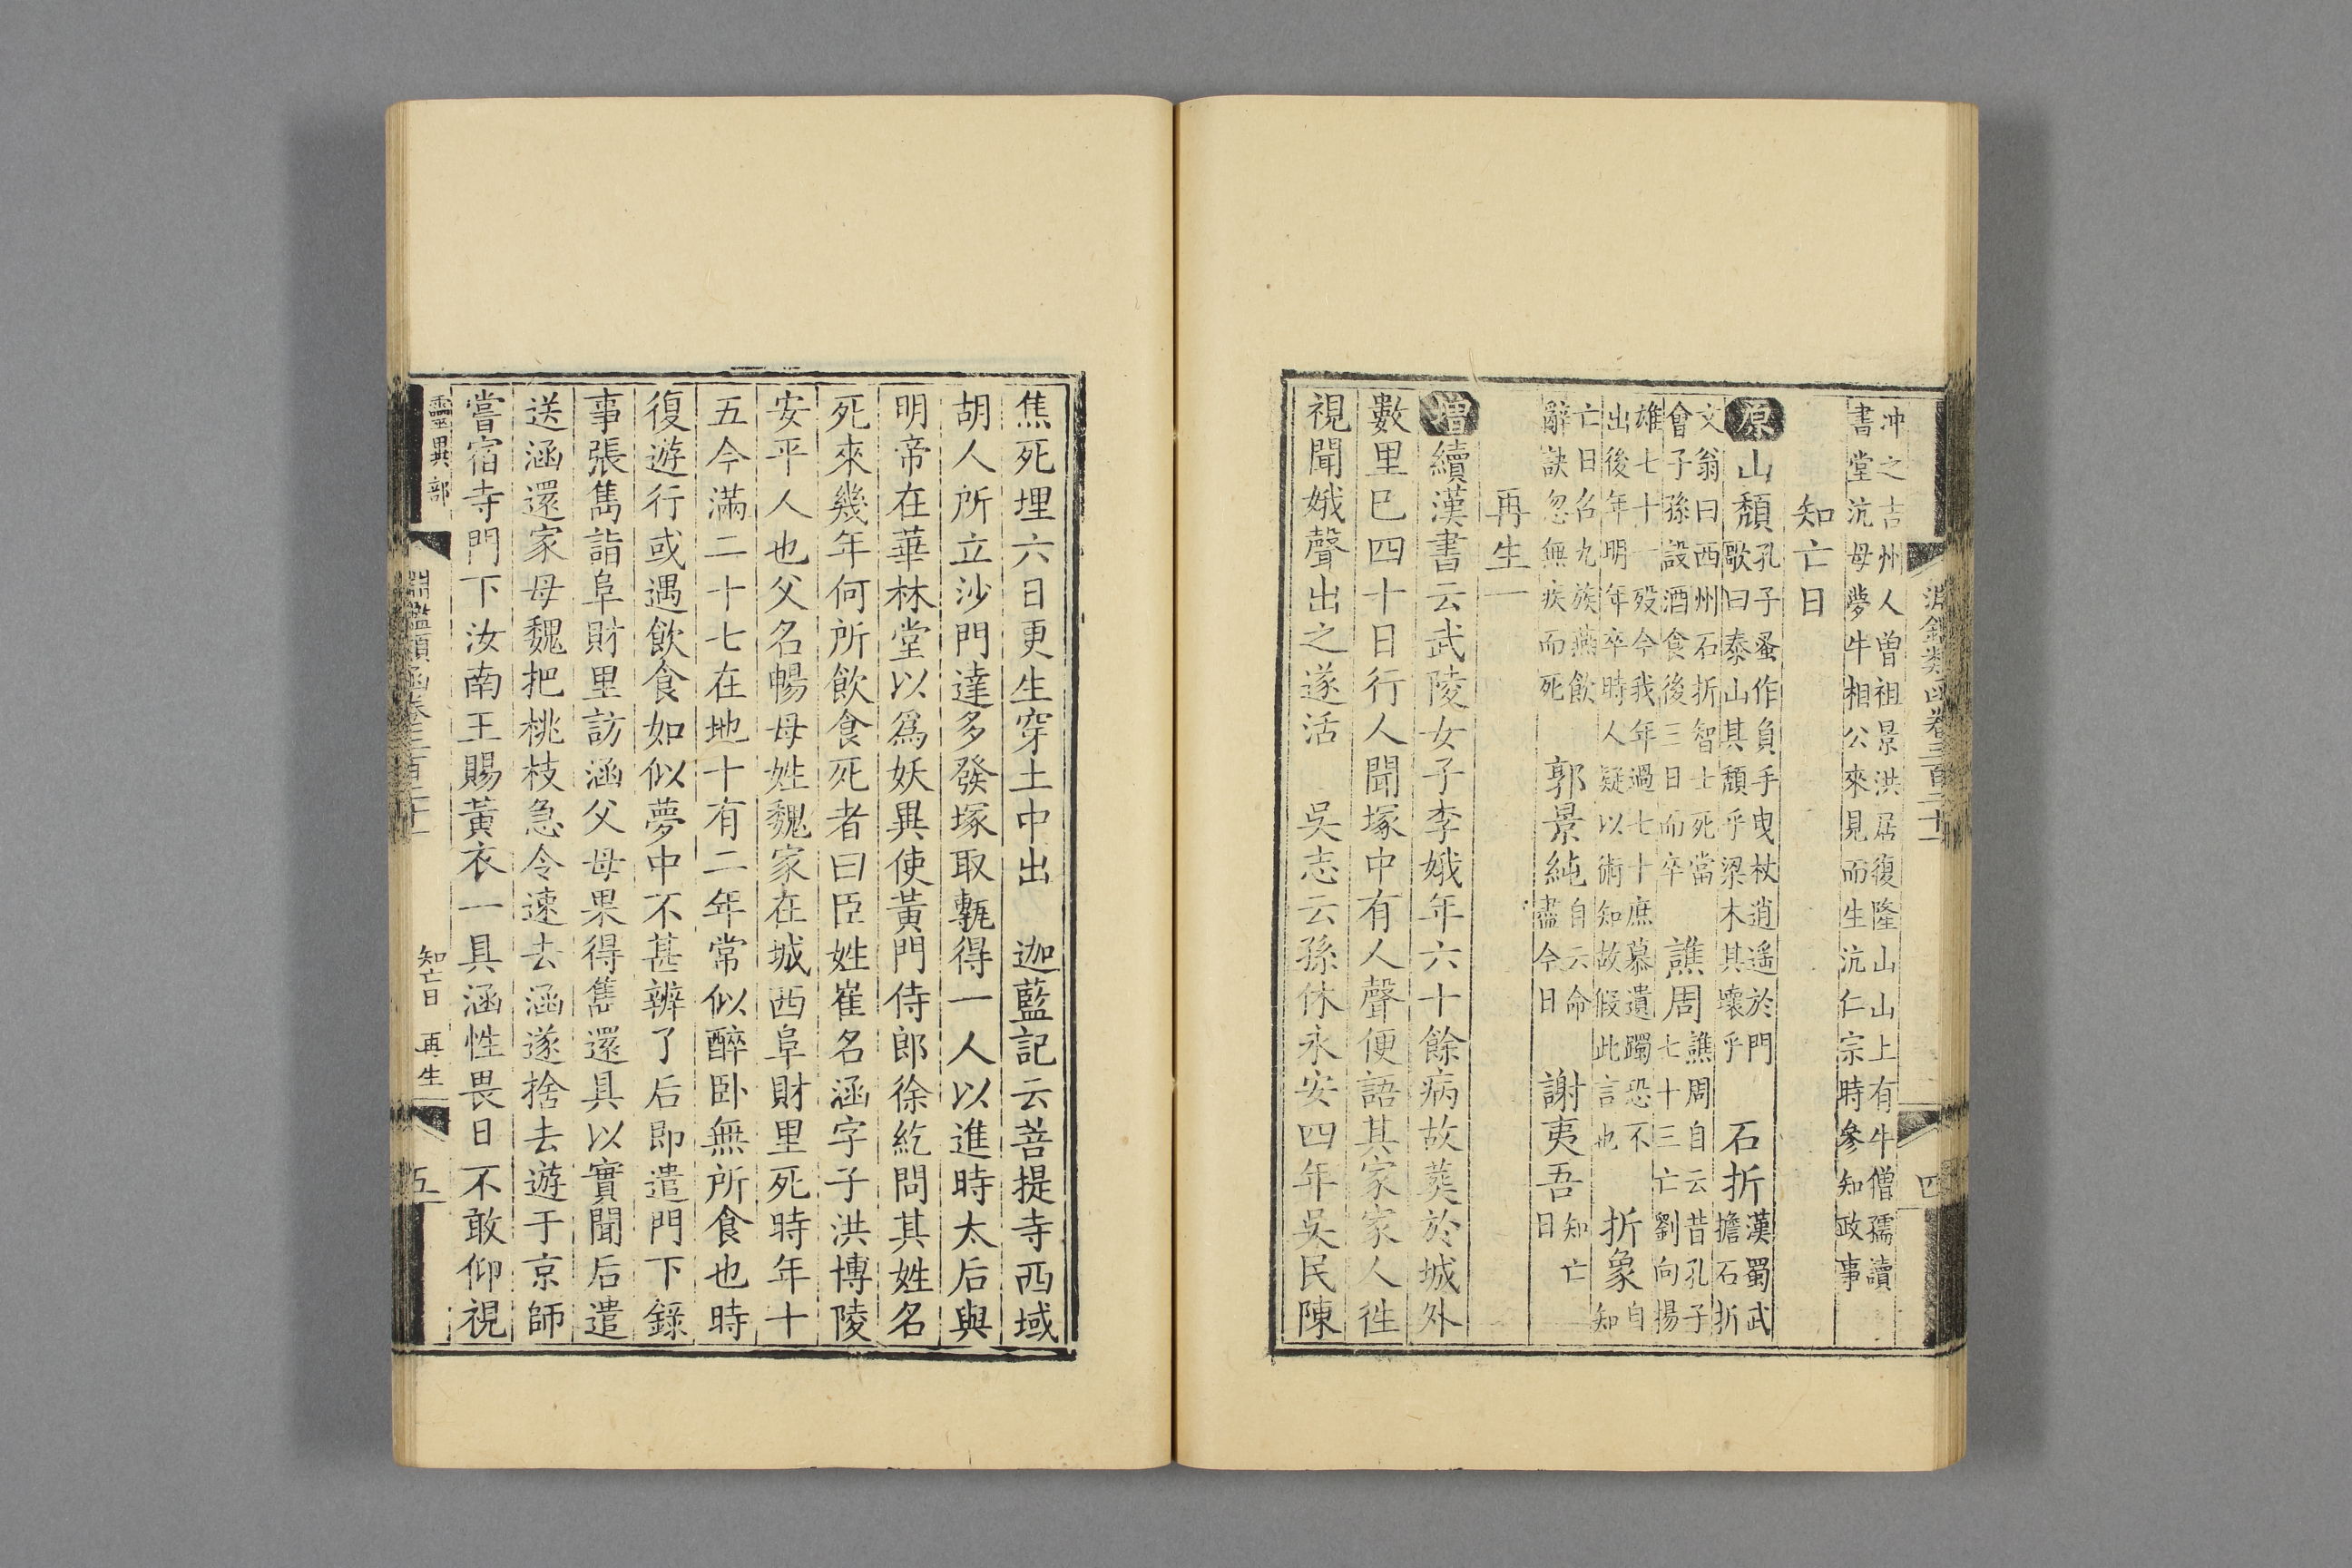 淵鑑類函卷三百二十一
四
冲之吉州人曾祖景洪居復隆山山上有牛僧孺讀
書堂沆母夢牛相公來見而生沆仁宗時參知政事
知亡日
原山頹孔子蚤作負手曳杖逍遙於門
歌曰泰山其頹乎梁木其壞乎
石折漢蜀武
擔石折
文翁曰西州石折智士死當
會子孫設酒食後三日而卒
譙周譙周自云昔孔子
七十三亡劉向揚
雄七十一歿今我年過七十庶慕遺躅恐不
出後年明年卒時人疑以術知故假此言也
折象自
知
亡日召九族燕飲
辭訣忽無疾而死
郭景純自云命
盡今日
謝夷吾知亡
日
再生一
增續漢書云武陵女子李娥年六十餘病故葬於城外
數里已四十日行人聞塚中有人聲便語其家家人徃
視聞娥聲出之遂活 吳志云孫休永安四年吳民陳
焦死埋六日更生穿土中出 迦藍記云菩提寺西域
胡人所立沙門達多發塚取甎得一人以進時太后與
明帝在華林堂以爲妖異使黃門侍郎徐紇問其姓名
死來幾年何所飲食死者曰臣姓崔名涵字子洪博陵
安平人也父名暢母姓魏家在城西阜財里死時年十
五今滿二十七在地十有二年常似醉臥無所食也時
復遊行或遇飲食如似夢中不甚辨了后即遣門下錄
事張雋詣阜財里訪涵父母果得雋還具以實聞后遣
送涵還家母魏把桃枝急令速去涵遂捨去遊于京師
嘗宿寺門下汝南王賜黃衣一具涵性畏日不敢仰視
靈異部
淵鑑類函卷三百二十一
知亡日 再生一
五